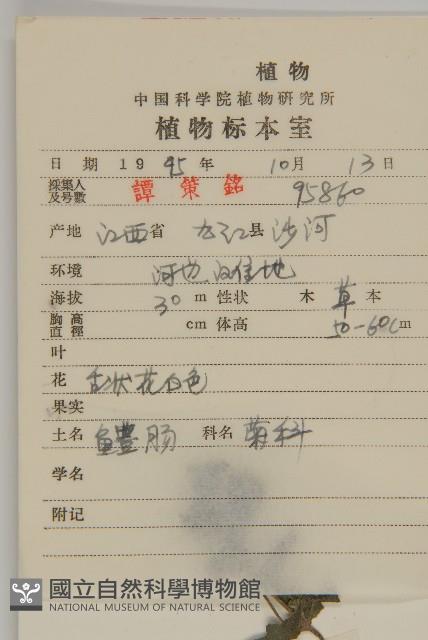 植物
中国科学院植物研究所
植物标本室
日期 1995年 10月 13日
採集人及号數 譚策銘 95860
产地 江西省 九江县沙河
环境 河边 洼地
海拔 30 m 性状 木 草本
胸高直徑 cm 体高 50-60cm
叶
花 舌状花白色
果实
土名 鱧肠 科名 菊科
学名
附记
國立自然科學博物館
NATIONAL MUSEUM OF NATURAL SCIENCE